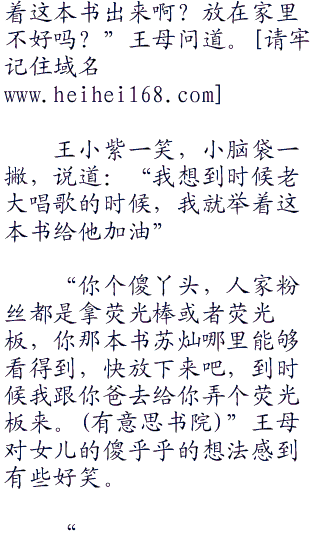 着这本书出来啊？放在家里
不好吗？”王母问道。[请牢
记住域名
www.heihei168.com]
王小紫一笑，小脑袋一
撇，说道：“我想到时候老
大唱歌的时候，我就举着这
本书给他加油”
“你个傻丫头，人家粉
丝都是拿荧光棒或者荧光
板，你那本书苏灿哪里能够
看得到，快放下来吧，到时
候我跟你爸去给你弄个荧光
板来。(有意思书院)”王母
对女儿的傻乎乎的想法感到
有些好笑。
“